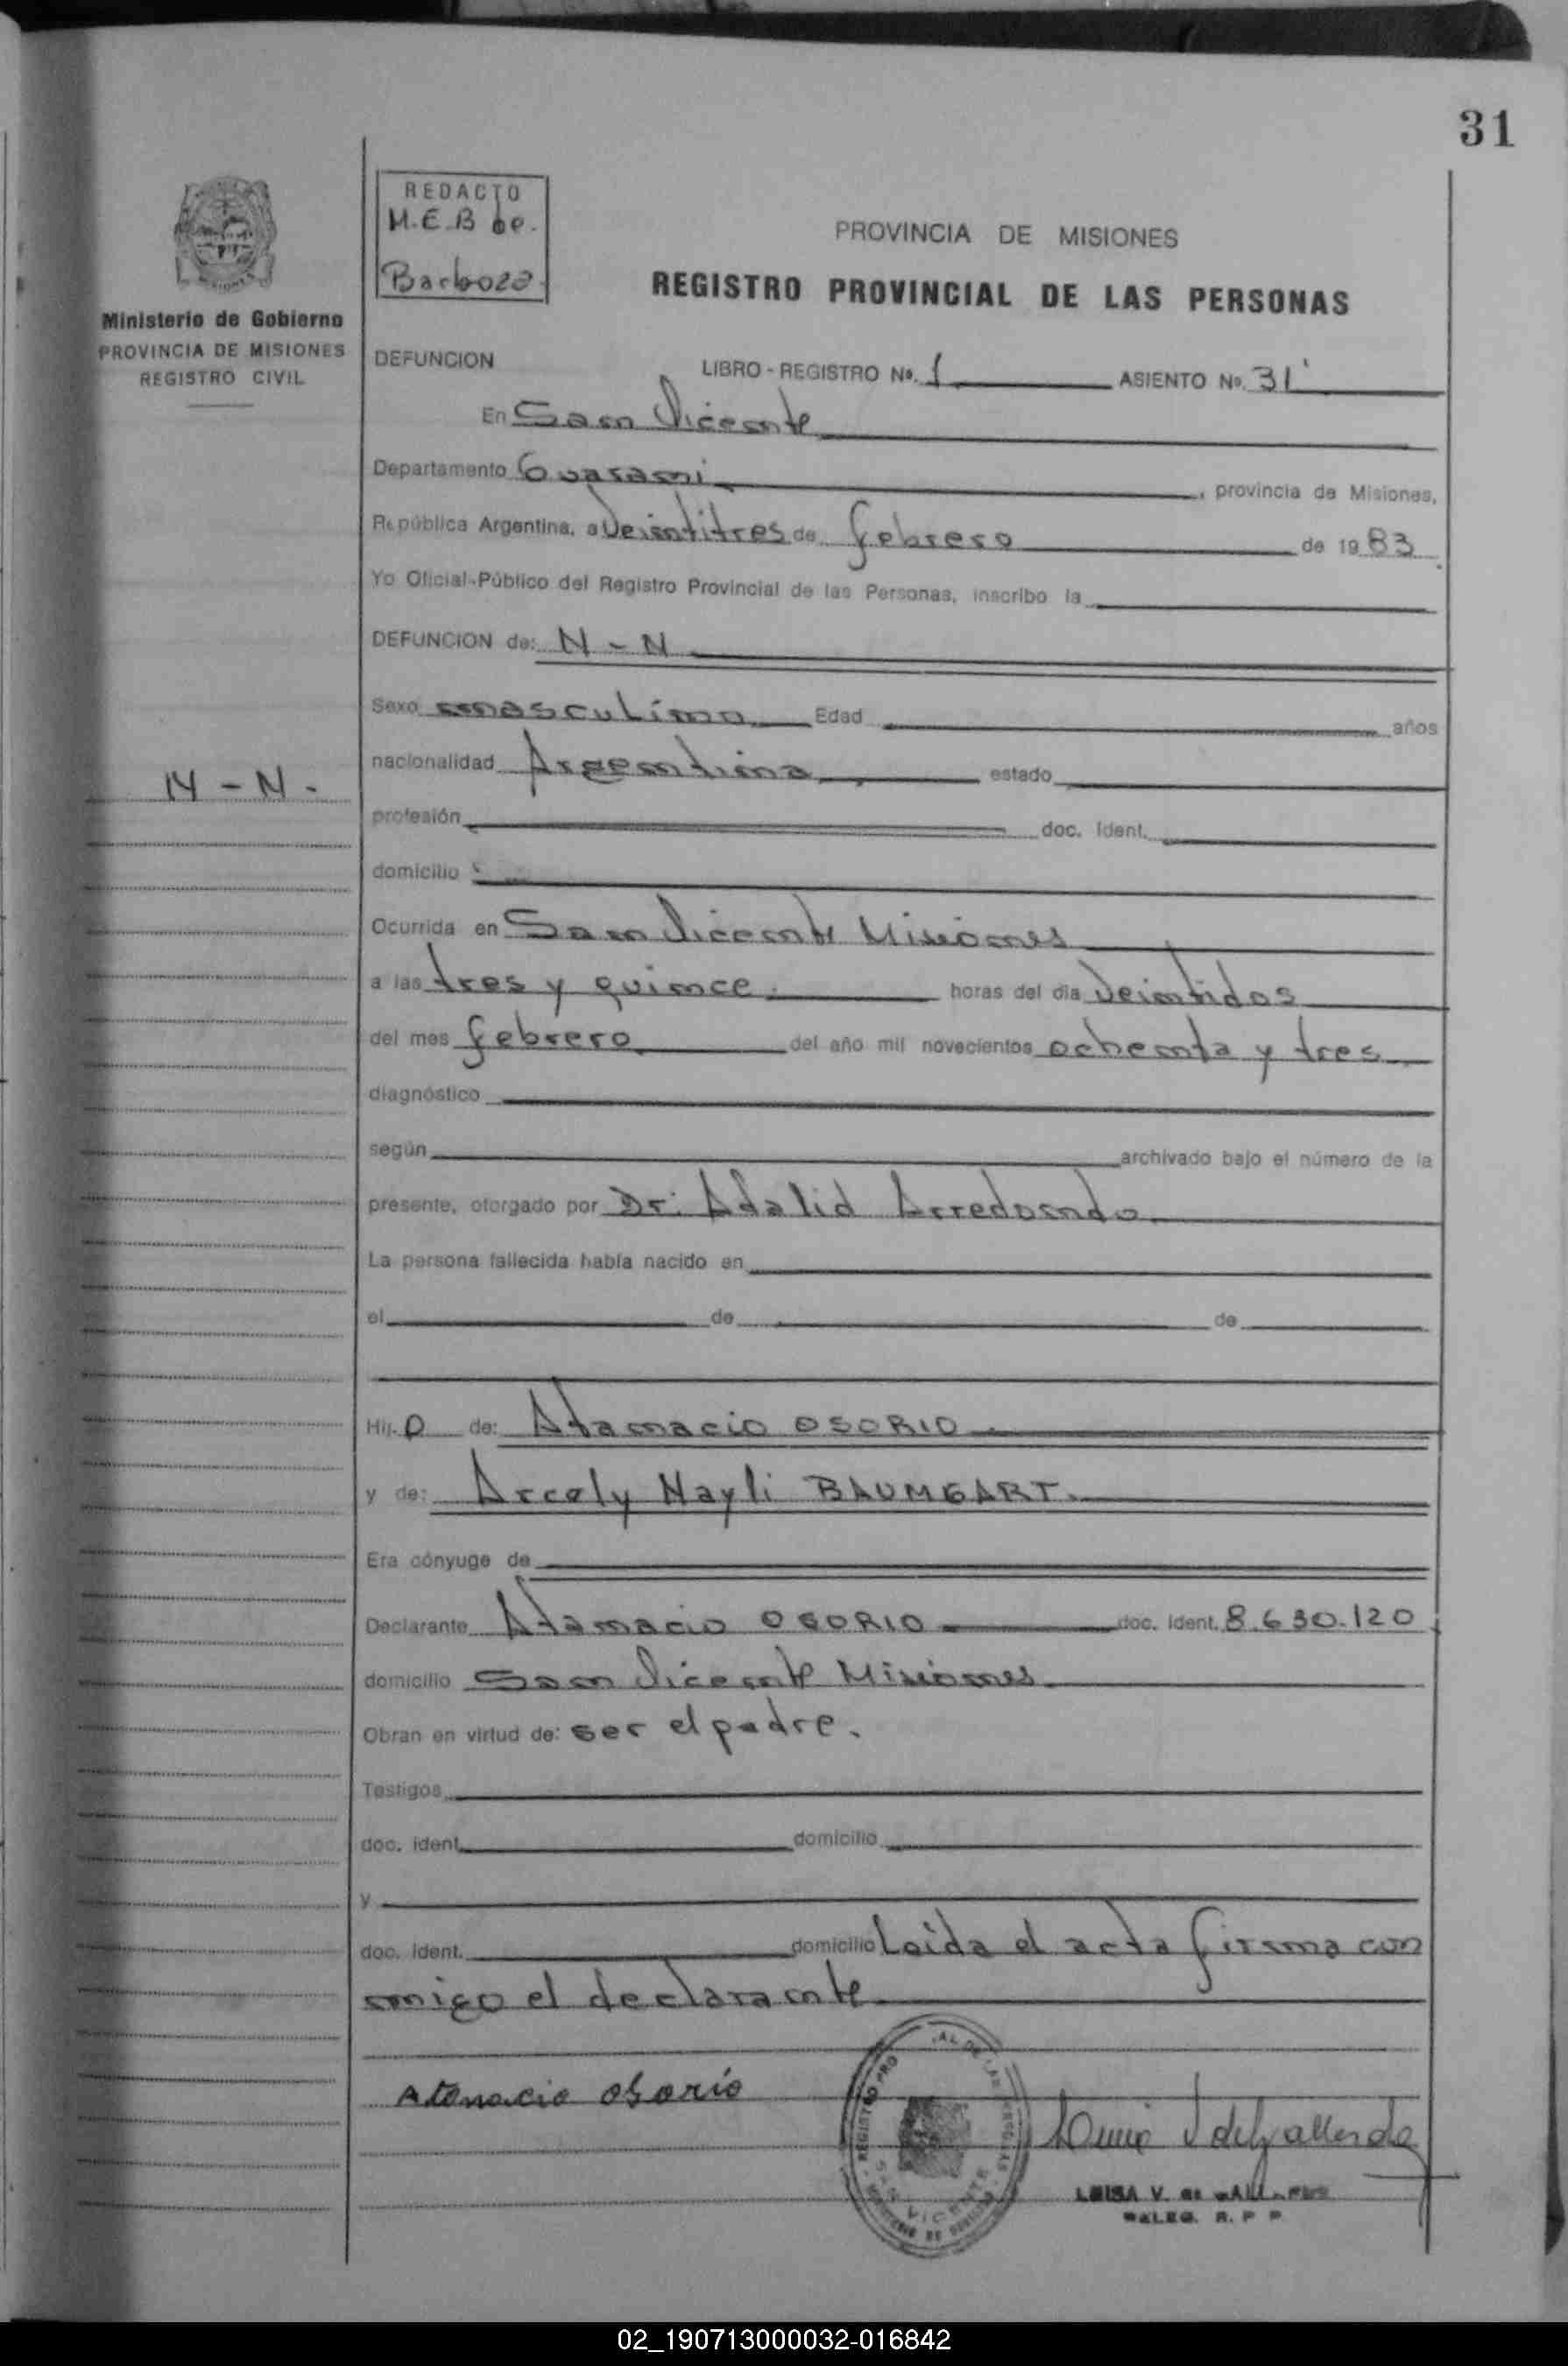 31
REDACTO
M.E.B de.
Barboza
PROVINCIA DE MISIONES
REGISTRO PROVINCIAL DE LAS PERSONAS
Ministerio de Gobierno
PROVINCIA DE MISIONES
REGISTRO CIVIL
DEFUNCION LIBRO - REGISTRO Nº. 1 ASIENTO Nº. 31
En San Vicente
Departamento Guarani , provincia de Misiones,
República Argentina, a Veintitres de febrero de 19 83
Yo Oficial-Público del Registro Provincial de las Personas, inscribo la
DEFUNCION de: N - N
Sexo masculino Edad años
N - N -
nacionalidad Argentina estado
profesión doc. Ident.
domicilio
Ocurrida en San Vicente Misiones
a las tres y quince horas del día Veintidos
del mes febrero del año mil novecientos ochenta y tres
diagnóstico
según archivado bajo el número de la
presente, otorgado por Dr: Adalid Arredondo
La persona fallecida había nacido en
el de de
Hij. o de: Atanacio OSORIO
y de: Arcely Nayli BAUMGART.
Era cónyuge de
Declarante Atanacio OSORIO doc. ident. 8.630.120
domicilio San Vicente Misiones
Obran en virtud de: ser el padre.
Testigos
doc. ident. domicilio
y
doc. ident. domicilio Leida el acta firma con
migo el declarante
Atanacio Osorio
LUISA V. de
R. P. P.
02_190713000032-016842